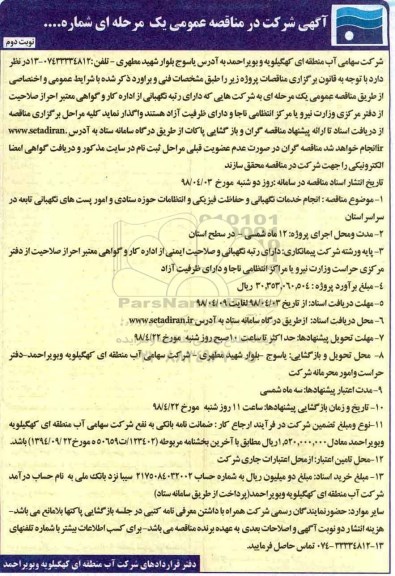 آگهی شرکت در مناقصه عمومی یک مرحله ای شماره....
نوبت دوم
شرکت سهامی آب منطقه ای کهگیلویه و بویراحمد به آدرس یاسوج بلوار شهید مطهری - تلفن: ۱۳-۰۷۴۳۳۳۳۴۸۱۲ در نظر
دارد با توجه به قانون برگزاری مناقصات پروژه زیر را طبق مشخصات فنی و براورد ذکر شده با شرایط عمومی و اختصاصی
از طریق مناقصه عمومی یک مرحله ای به شرکت هایی که دارای رتبه نگهبانی از اداره کار و گواهی معتبر احراز صلاحیت
از دفتر مرکزی وزارت نیرو یا مرکز انتظامی ناجا و دارای ظرفیت آزاد هستند واگذار نماید کلیه مراحل برگزاری مناقصه
از دریافت اسناد تا ارائه پیشنهاد مناقصه گران و بازگشایی پاکات از طریق درگاه سامانه ستاد به آدرس www.setadiran.
ir انجام خواهد شد مناقصه گران در صورت عدم عضویت قبلی مراحل ثبت نام در سایت مذکور و دریافت گواهی امضا
الکترونیکی را جهت شرکت در مناقصه محقق سازند
تاریخ انتشار اسناد مناقصه در سامانه: روز دو شنبه مورخ ۹۸/۰۴/۰۳
۱- موضوع مناقصه: انجام خدمات نگهبانی و حفاظت فیزیکی و انتظامات حوزه ستادی و امور پست های نگهبانی تابعه در
سراسر استان
۲- مدت ومحل اجرای پروژه: ۱۲ ماه شمسی - در سطح استان
۳- پایه ورشته شرکت پیمانکاری: دارای رتبه نگهبانی و صلاحیت ایمنی از اداره کار و گواهی معتبر احراز صلاحیت از دفتر
مرکزی حراست وزارت نیرو یا مراکز انتظامی ناجا و دارای ظرفیت آزاد
۴- مبلغ برآورد پروژه: ۳۰,۳۵۳,۰۶۰,۵۰۴ ریال
۵- مهلت دریافت اسناد: از تاریخ ۹۸/۰۴/۰۳ لغایت ۹۸/۰۴/۰۹
۶- محل دریافت اسناد: ازطریق درگاه سامانه ستاد به آدرس www.setadiran.ir
۷- مهلت تحویل پیشنهادها: حداکثر تا ساعت ۱۰ صبح روز شنبه مورخ ۹۸/۴/۲۲
۸- محل تحویل و بازگشایی: یاسوج -بلوار شهید مطهری - شرکت سهامی آب منطقه ای کهگیلویه وبویراحمد-دفتر
حراست وامور محرمانه شرکت
۹- مدت اعتبار پیشنهادها: سه ماه شمسی
۱۰- تاریخ و زمان بازگشایی پیشنهادها: ساعت ۱۱ روز شنبه مورخ ۹۸/۴/۲۲
۱۱- نوع ومبلغ تضمین شرکت در فرآیند ارجاع کار: ضمانت نامه بانکی به نفع شرکت سهامی آب منطقه ای کهگیلویه
وبویراحمد معادل ۱,۵۲۰,۰۰۰,۰۰۰ ریال مطابق با آخرین بخشنامه مربوطه (۱۲۳۴۰۲/ت۵۰۶۵۹ ه مورخ ۱۳۹۴/۰۹/۲۲) باشد.
۱۲- محل تامین اعتبار: از محل اعتبارات جاری شرکت
۱۳- مبلغ خرید اسناد: مبلغ دو میلیون ریال به شماره حساب ۲۱۷۵۰۸۴۰۳۲۰۰۲ سیبا نزد بانک ملی به نام حساب درآمد
شرکت آب منطقه ای کهگیلویه وبویراحمد(پرداخت از طریق سامانه ستاد)
سایر موارد: حضورنمایندگان رسمی شرکت همراه با داشتن معرفی نامه کتبی در جلسه بازگشایی پاکتها بلامانع می باشد-
هزینه انتشار دو نوبت آگهی و اصلاحات بعدی به عهده برنده مناقصه می باشد-برای کسب اطلاعات بیشتر با شماره تلفنهای
۱۳-۳۳۳۳۴۸۱۲-۰۷۴ تماس حاصل فرمایید.
دفتر قراردادهای شرکت آب منطقه ای کهگیلویه وبویراحمد